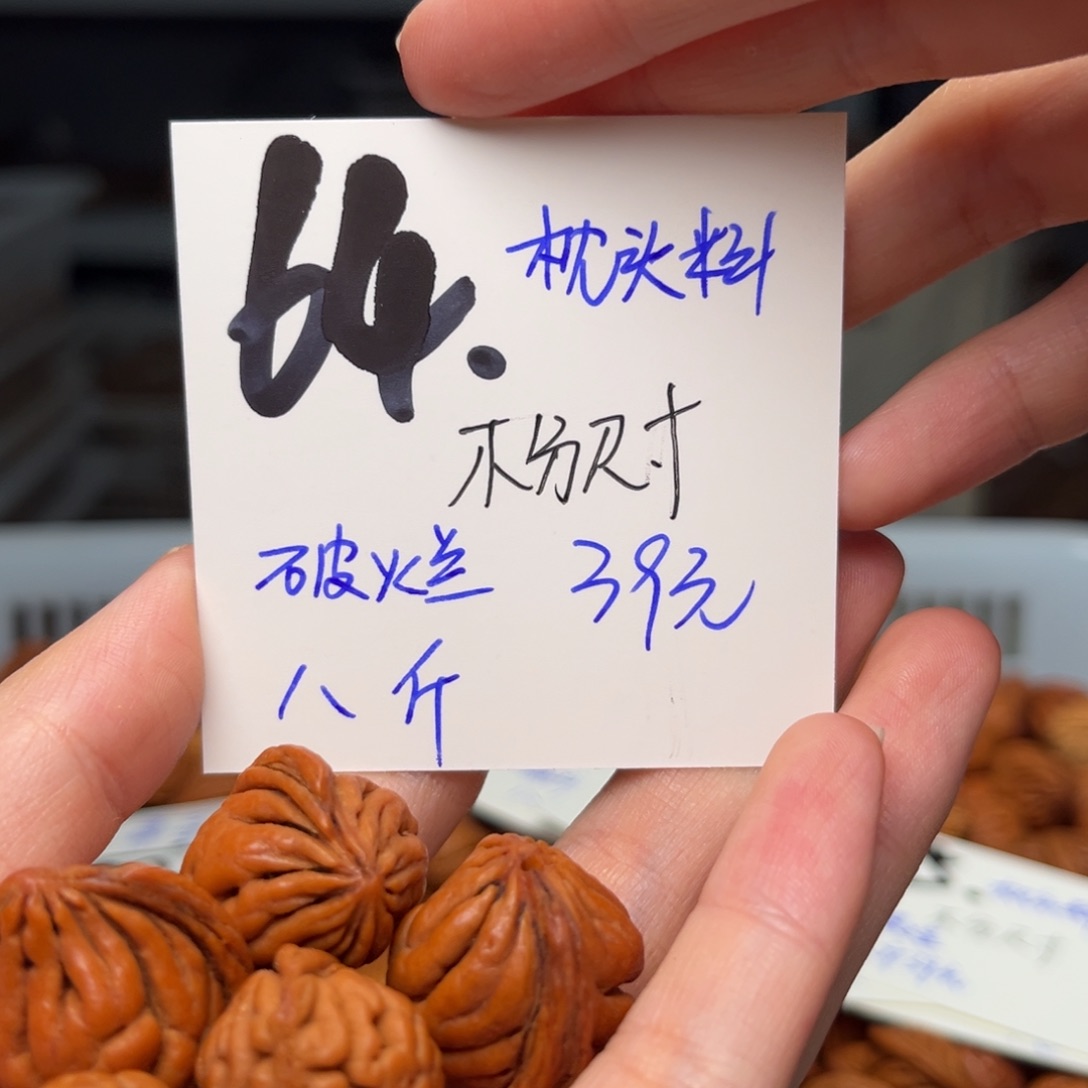 64. 枕头料
不分尺寸
破烂 39元
八斤